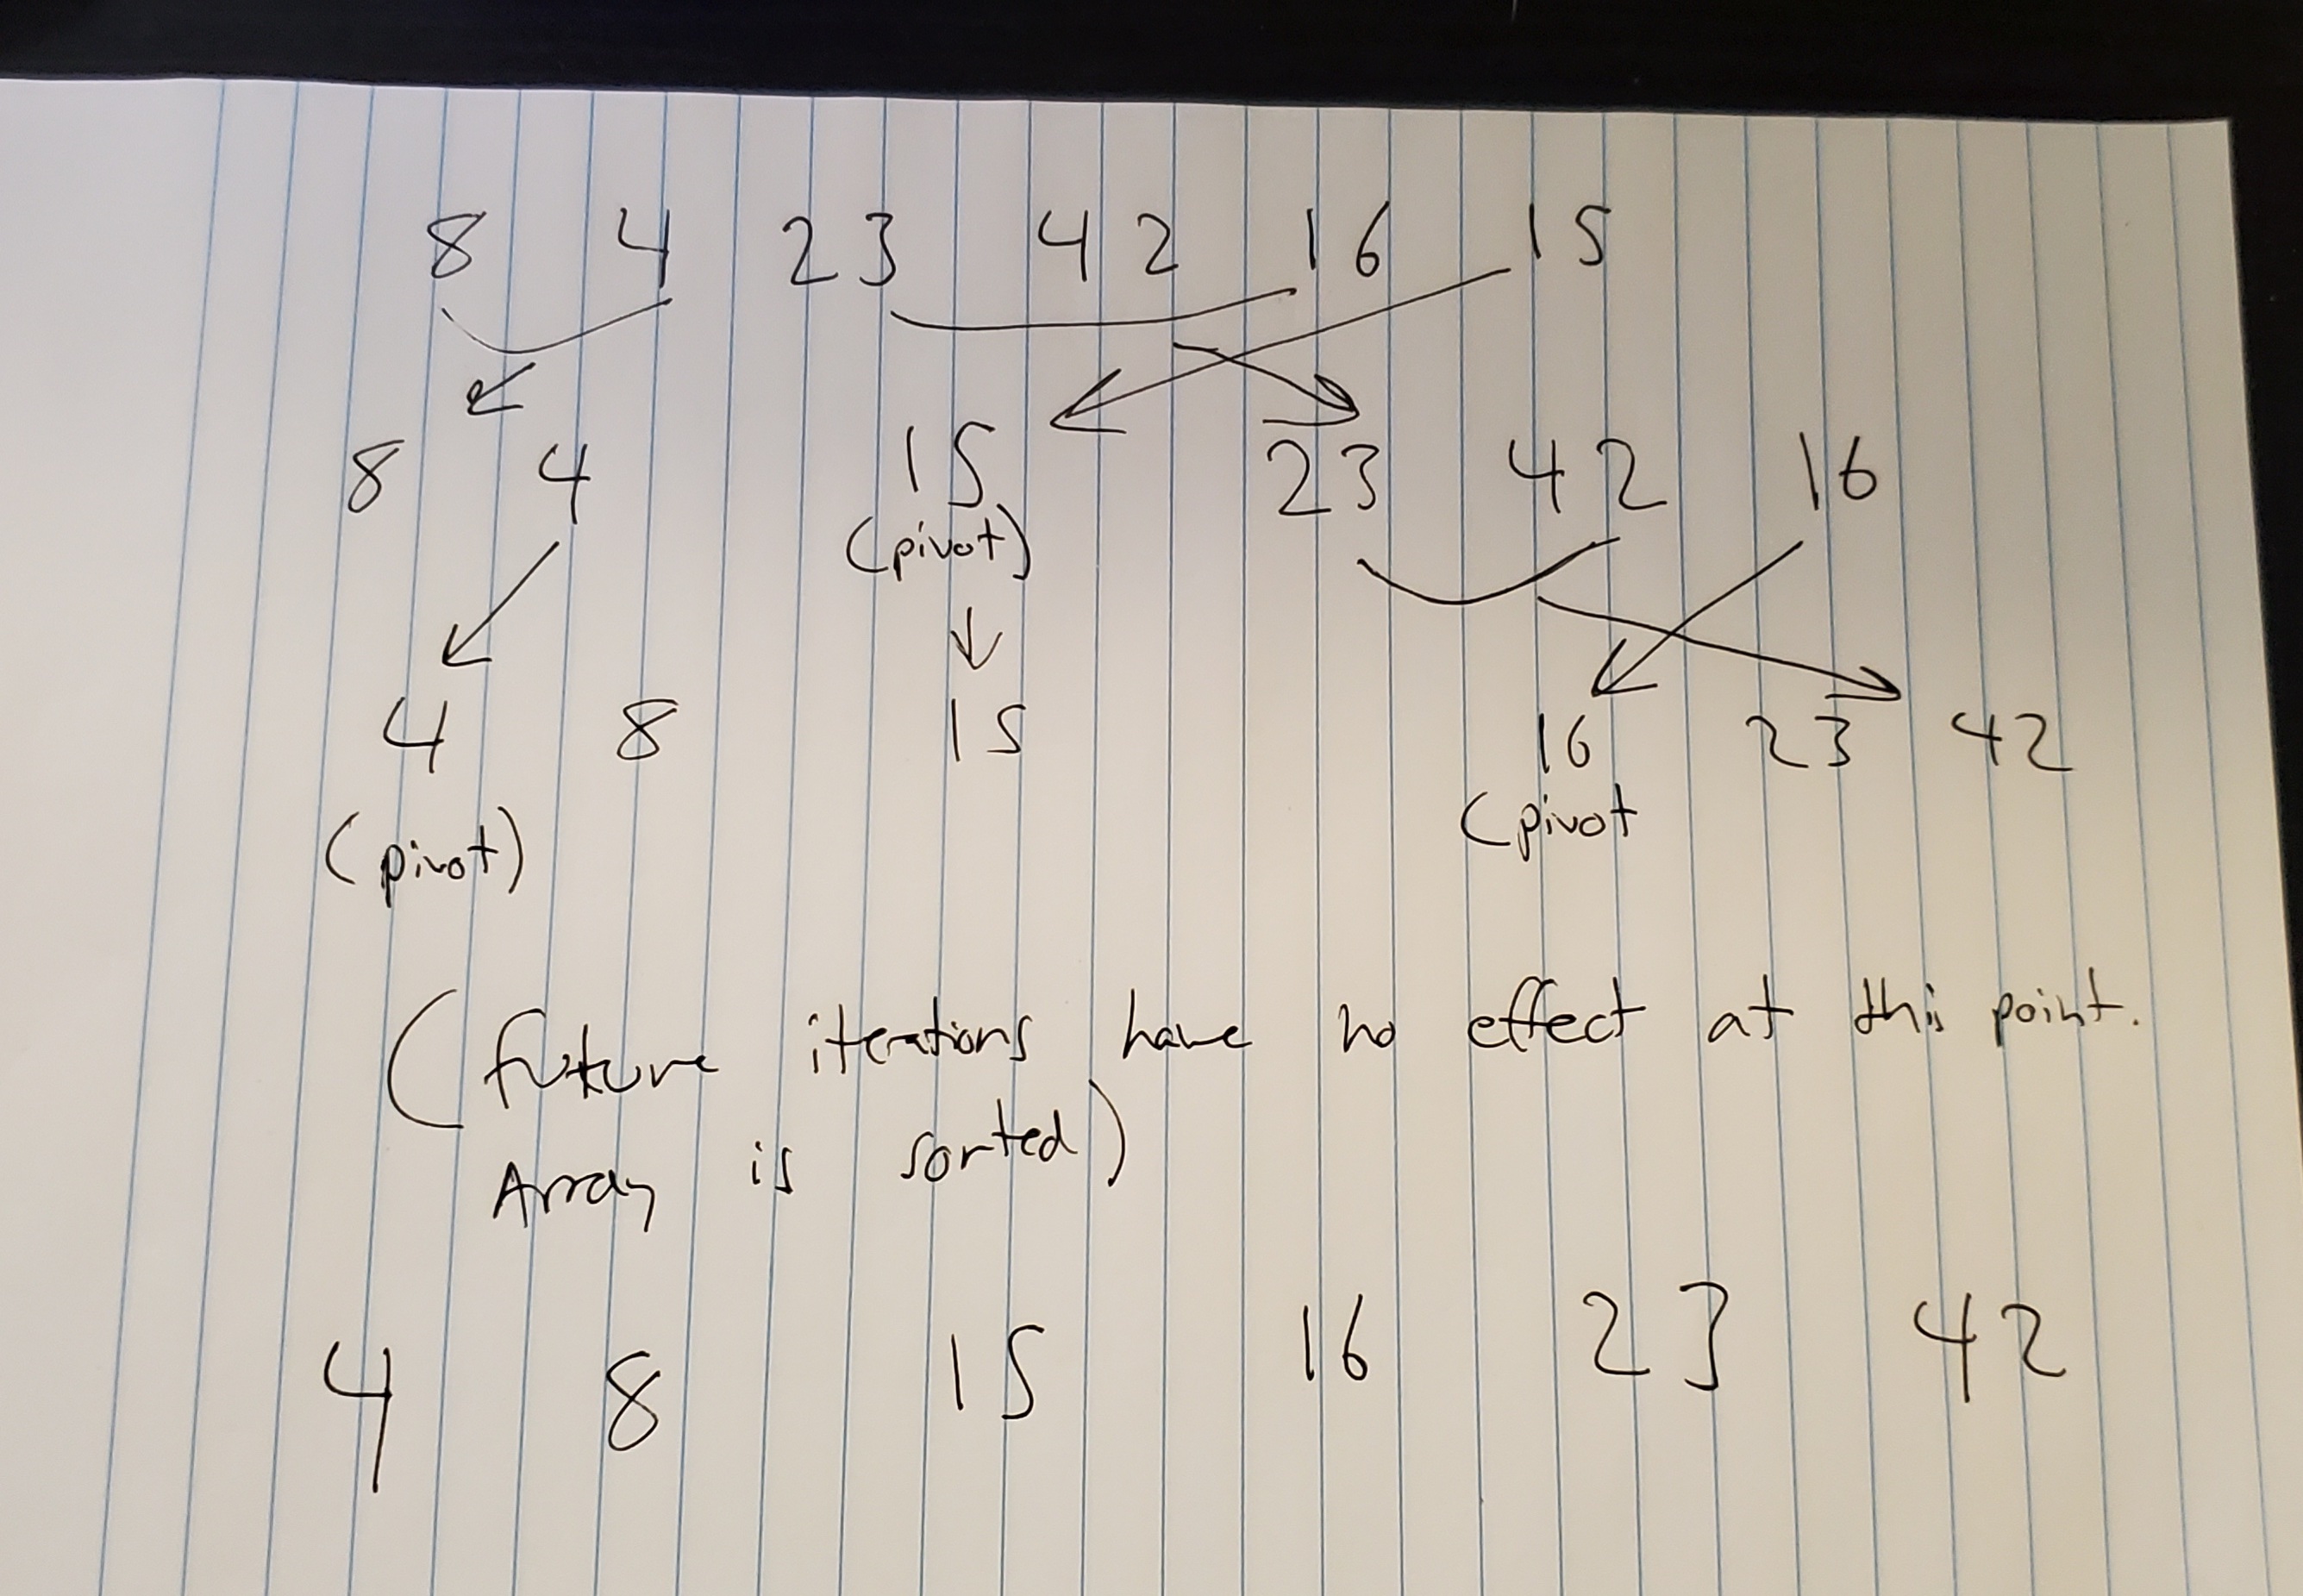 8 4 23 42 16 15
8 4 15 23 42 16
(pivot)
4 8 15 16 23 42
(pivot) (pivot
(future iterations have no effect at this point.
Array is sorted)
4 8 15 16 23 42